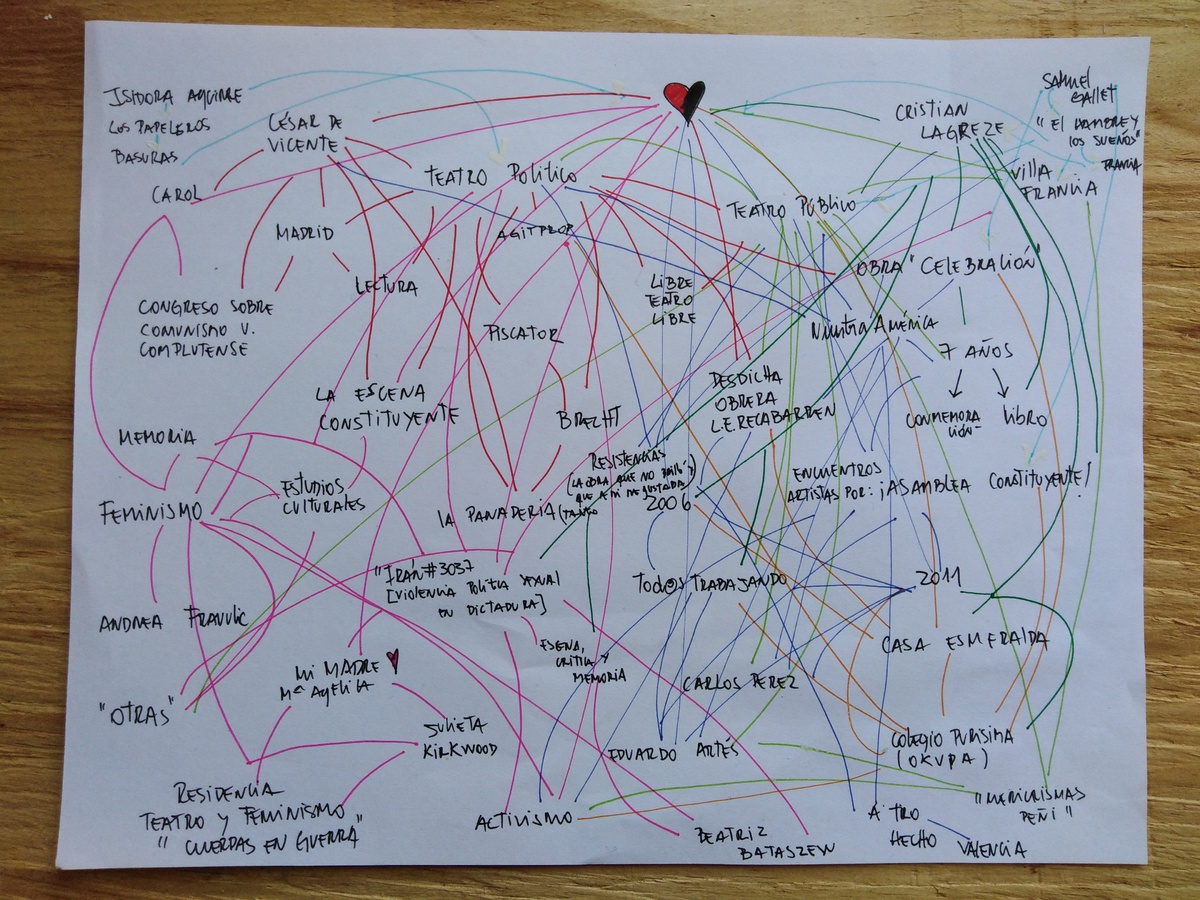 ISIDORA AGUIRRE
LOS PAPELEROS
BASURAS
CÉSAR DE
VICENTE
CAROL
MADRID
CONGRESO SOBRE
COMUNISMO U.
COMPLUTENSE
LECTURA
TEATRO POLÍTICO
AGITPROP
PISCATOR
LIBRE
TEATRO
LIBRE
TEATRO PÚBLICO
CRISTIAN
LAGREZE
SAMUEL
GALLET
"EL HAMBRE Y
LOS SUEÑOS"
FRANCIA
VILLA
FRANCIA
OBRA "CELEBRACIÓN"
NUESTRA AMÉRICA
7 AÑOS
CONMEMORA
CIÓN-
LIBRO
LA ESCENA
CONSTITUYENTE
BRECHT
DESDICHA
OBRERA
L.E. RECABARREN
MEMORIA
FEMINISMO
ESTUDIOS
CULTURALES
LA PANADERÍA (TANGO
RESISTENCIAS
(LA OBRA QUE NO BAILÉ Y
QUE A MI ME GUSTABA)
2006
ENCUENTROS
ARTISTAS POR: ¡ASAMBLEA CONSTITUYENTE!
"IRÁN #3037
[VIOLENCIA POLÍTICA SEXUAL
EN DICTADURA]
TOD@S TRABAJANDO
2011
ANDREA FRAVLIC
ESCENA,
CRITICA Y
MEMORIA
CASA ESMERALDA
MI MADRE
Mª ANGÉLICA
CARLOS PEREZ
"OTRAS"
JULIETA
KIRKWOOD
EDUARDO ARTÉS
COLEGIO PURISIMA
(OKUPA)
RESIDENCIA
TEATRO Y FEMINISMO
"CUERDAS EN GUERRA"
ACTIVISMO
BEATRIZ
BATASZEW
A TRO
HECHO
VALENCIA
PEÑI"